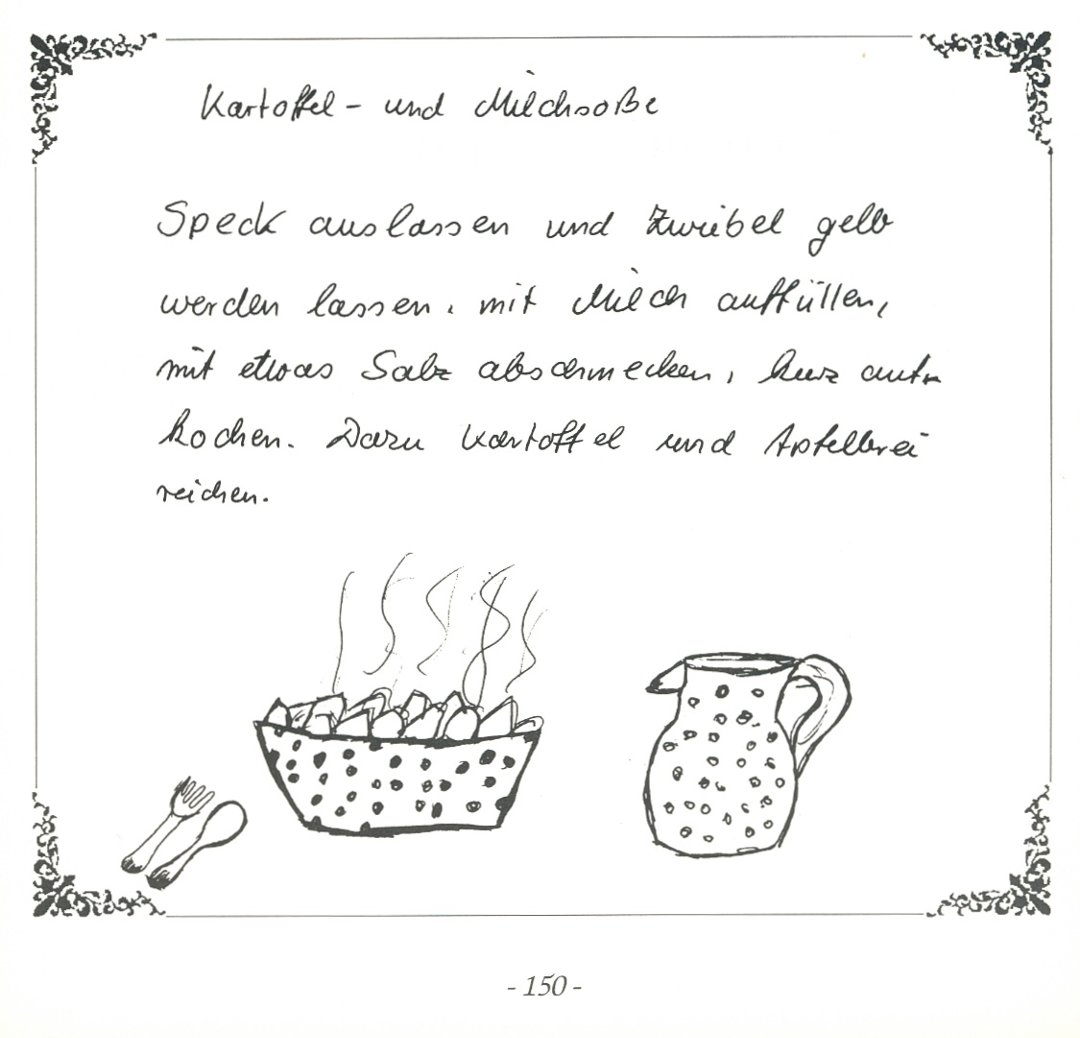 Kartoffel - und Milchsoße
Speck auslassen und Zwiebel gelb
werden lassen, mit Milch auffüllen,
mit etwas Salz abschmecken, kurz auf-
kochen. Dazu Kartoffel und Apfelbrei
reichen.
- 150 -